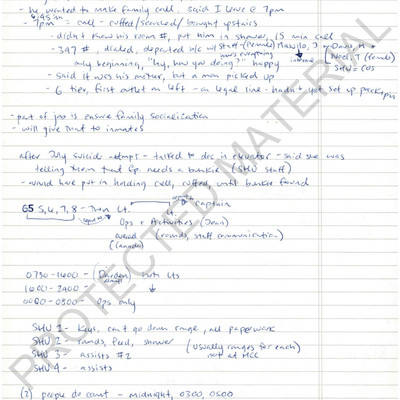 - he wanted to make family call, said I leave @ 7pm
6:45 in
- 7pm - call - cuffed / secured / brought upstairs
- didn't know his room #, put him in shower, 15 min call
- 347 #, dialed, departed b/c w/ staff
only beginning, "hey, how you doing?" happy
- said it was his mother, but a man picked up
- 6 tier, first outlet on left - on legal line - hadn't yet set up
- part of job is ensure family socialization
- will give that to inmates
after July suicide attempt - talked to doc in elevator - said she was
telling them that Ep. needs a bunkie (SHU staff)
- would have put in holding cell, cuffed, until bunkie found
GS 5, 6, 7, 8 - Then Lt.
Captain
Lt.
Ops + Activities
(rounds, staff communication)
0730-1600 - Lts
1600-2400 -
0000-0800 - Ops only
SHU 1 - keys, can't go down range, all paperwork
SHU 2 - rounds, feed, shower (usually ranges for each)
SHU 3 - assists #2 not at MCC
SHU 4 - assists
(2) people do count - midnight, 0300, 0500
PROTECTED MATERIAL